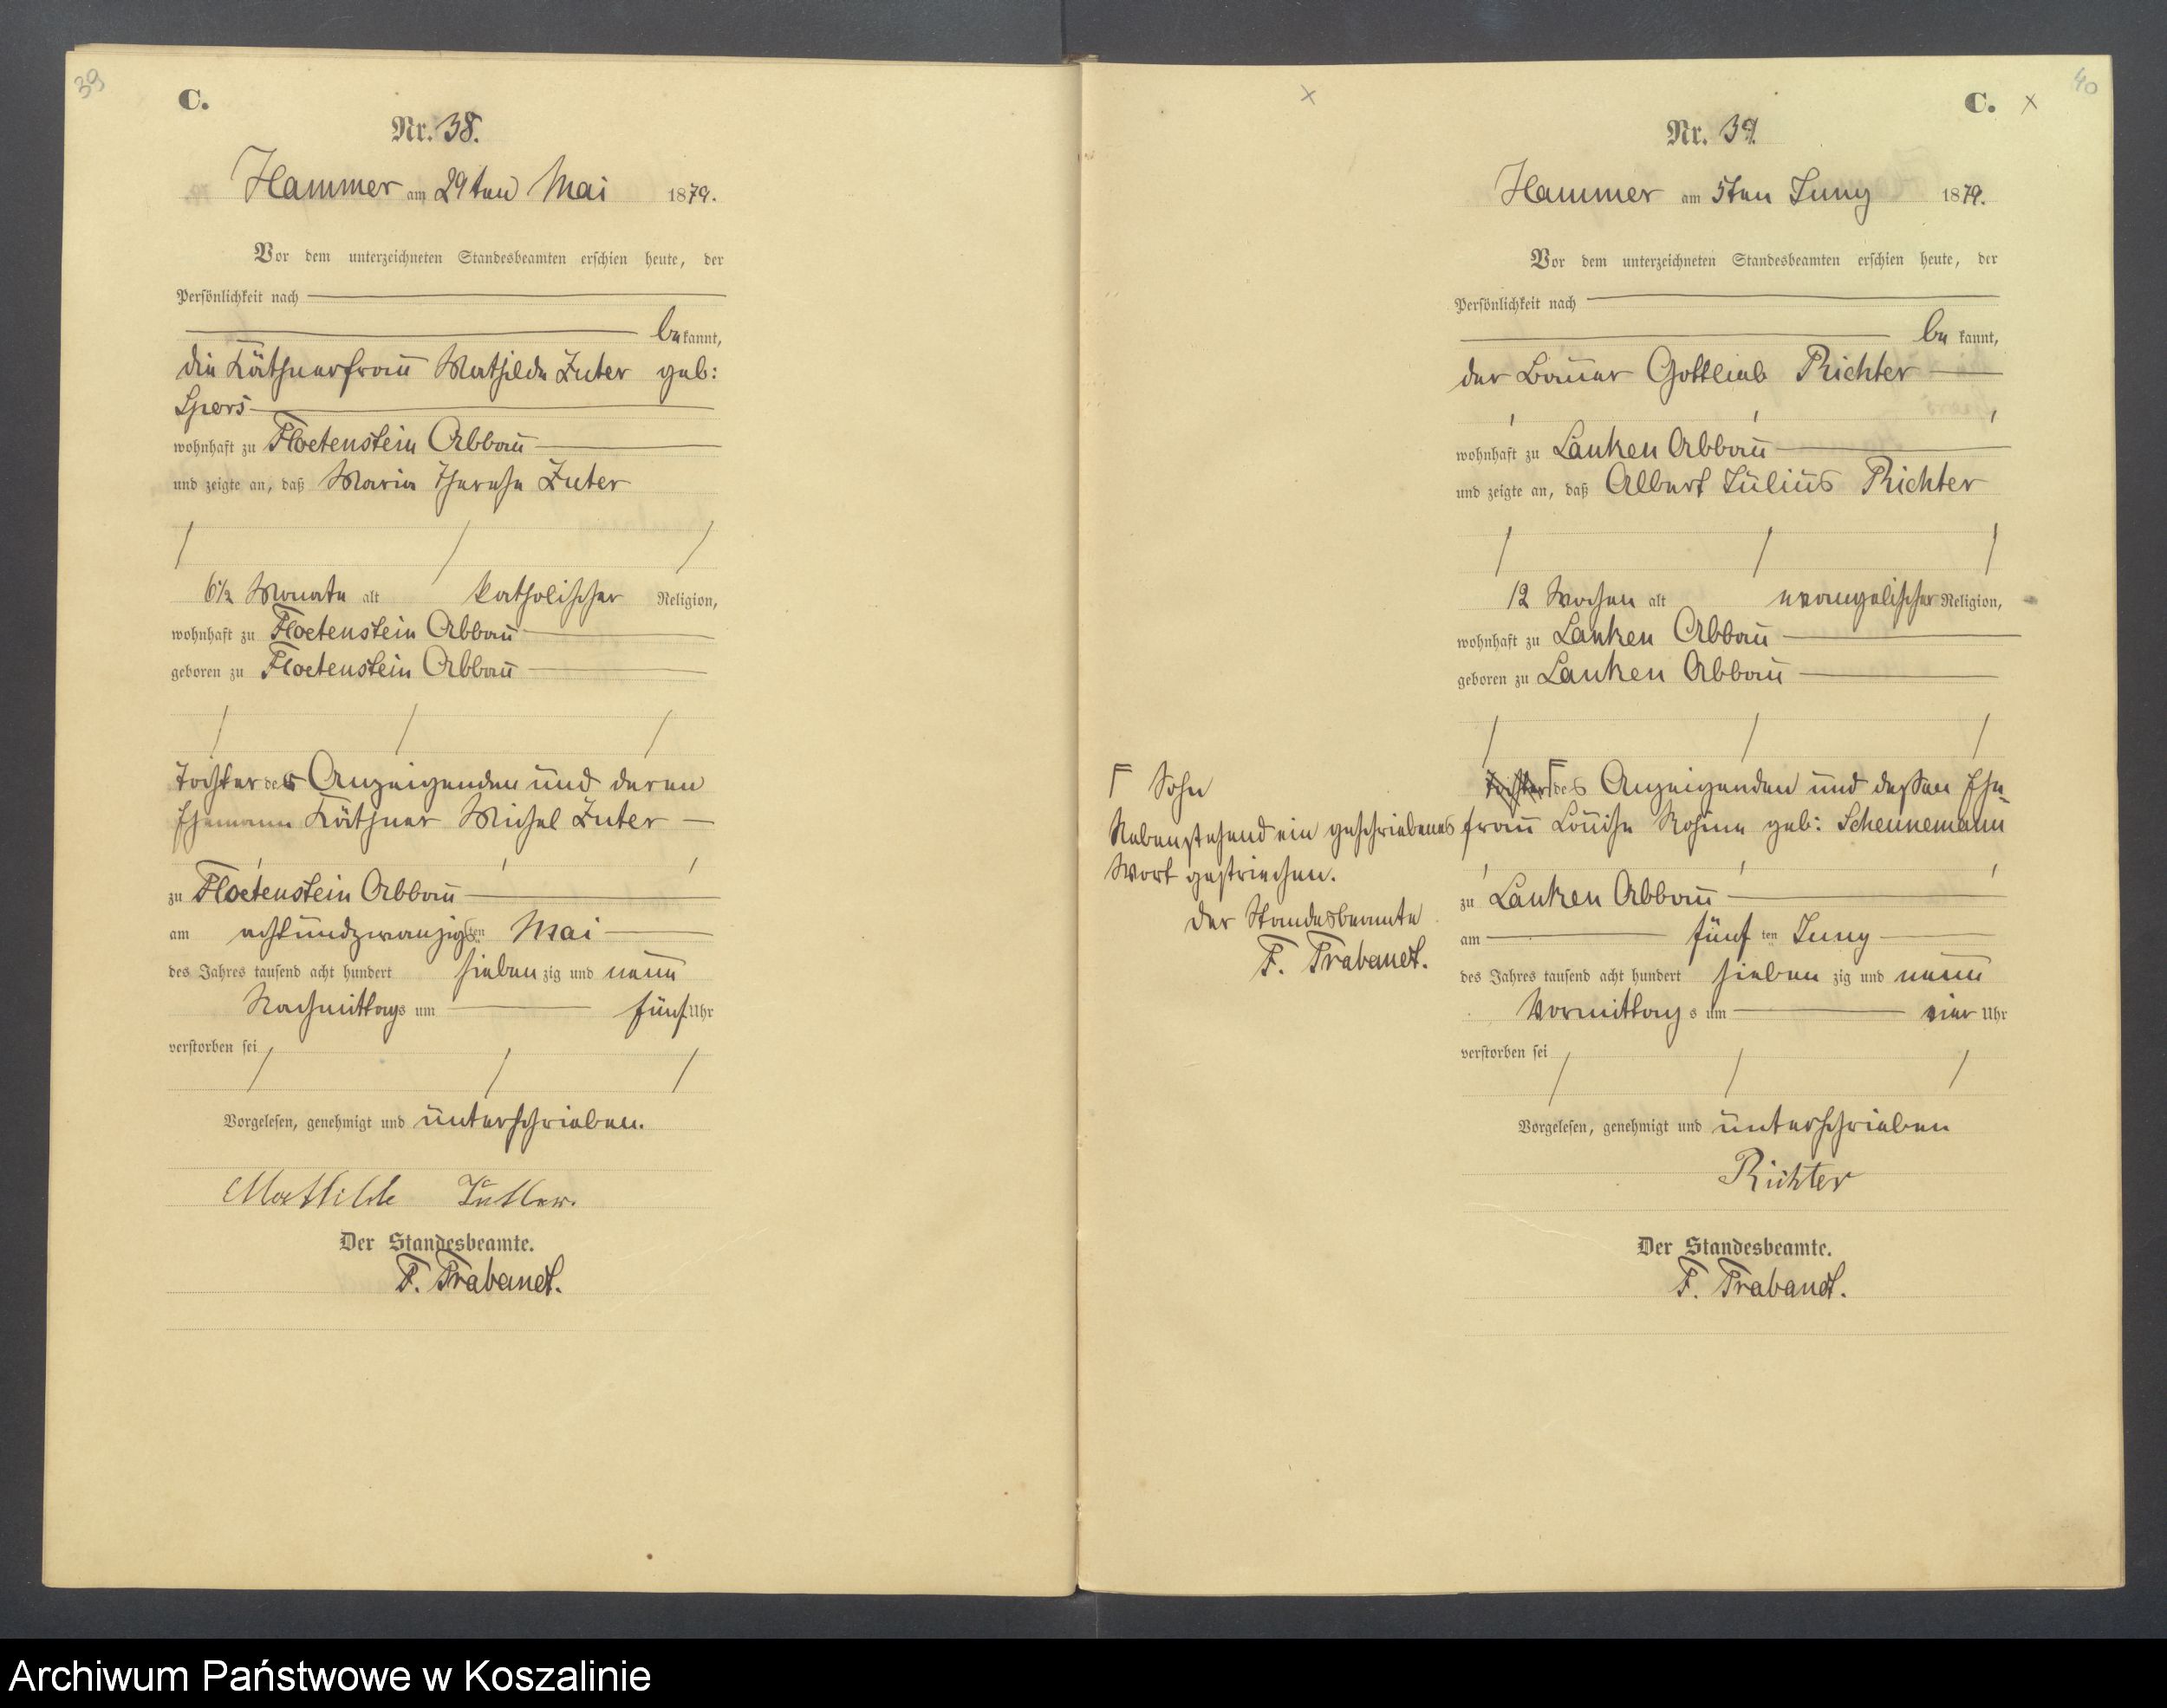 39
C.
Nr. 38.
Hammer am 29ten Mai 1879.
Vor dem unterzeichneten Standesbeamten erschien heute, der
Persönlichkeit nach
bekannt,
die Käthnerfrau Mathilde Zuter geb:
Spors
wohnhaft zu Floetenstein Abbau
und zeigte an, daß Maria Therese Zuter
6½ Monate alt katholischer Religion,
wohnhaft zu Floetenstein Abbau
geboren zu Floetenstein Abbau
Tochter der Anzeigenden und deren
Ehemann Käthner Michel Zuter
zu Floetenstein Abbau
am achtundzwanzigsten Mai
des Jahres tausend acht hundert siebenzig und neun
Nachmittags um fünf Uhr
verstorben sei
Vorgelesen, genehmigt und unterschrieben.
Mathilde
Der Standesbeamte.
F. Trabandt.
40
C.
Nr. 39.
Hammer am 5ten Juny 1879.
Vor dem unterzeichneten Standesbeamten erschien heute, der
Persönlichkeit nach
bekannt,
der Bauer Gottlieb Richter
wohnhaft zu Lanken Abbau
und zeigte an, daß Albert Julius Richter
12 Wochen alt evangelischer Religion,
wohnhaft zu Lanken Abbau
geboren zu Lanken Abbau
Tochter des Anzeigenden und dessen Ehe-
frau Louise Rosine geb: Schennemann
zu Lanken Abbau
am fünften Juny
des Jahres tausend acht hundert siebenzig und neun
Vormittags um vier Uhr
verstorben sei
Vorgelesen, genehmigt und unterschrieben
Richter
Der Standesbeamte.
F. Trabandt.
Sohn
Nebenstehend ein geschriebenes
Wort gestrichen.
Der Standesbeamte
F. Trabandt.
Archiwum Państwowe w Koszalinie